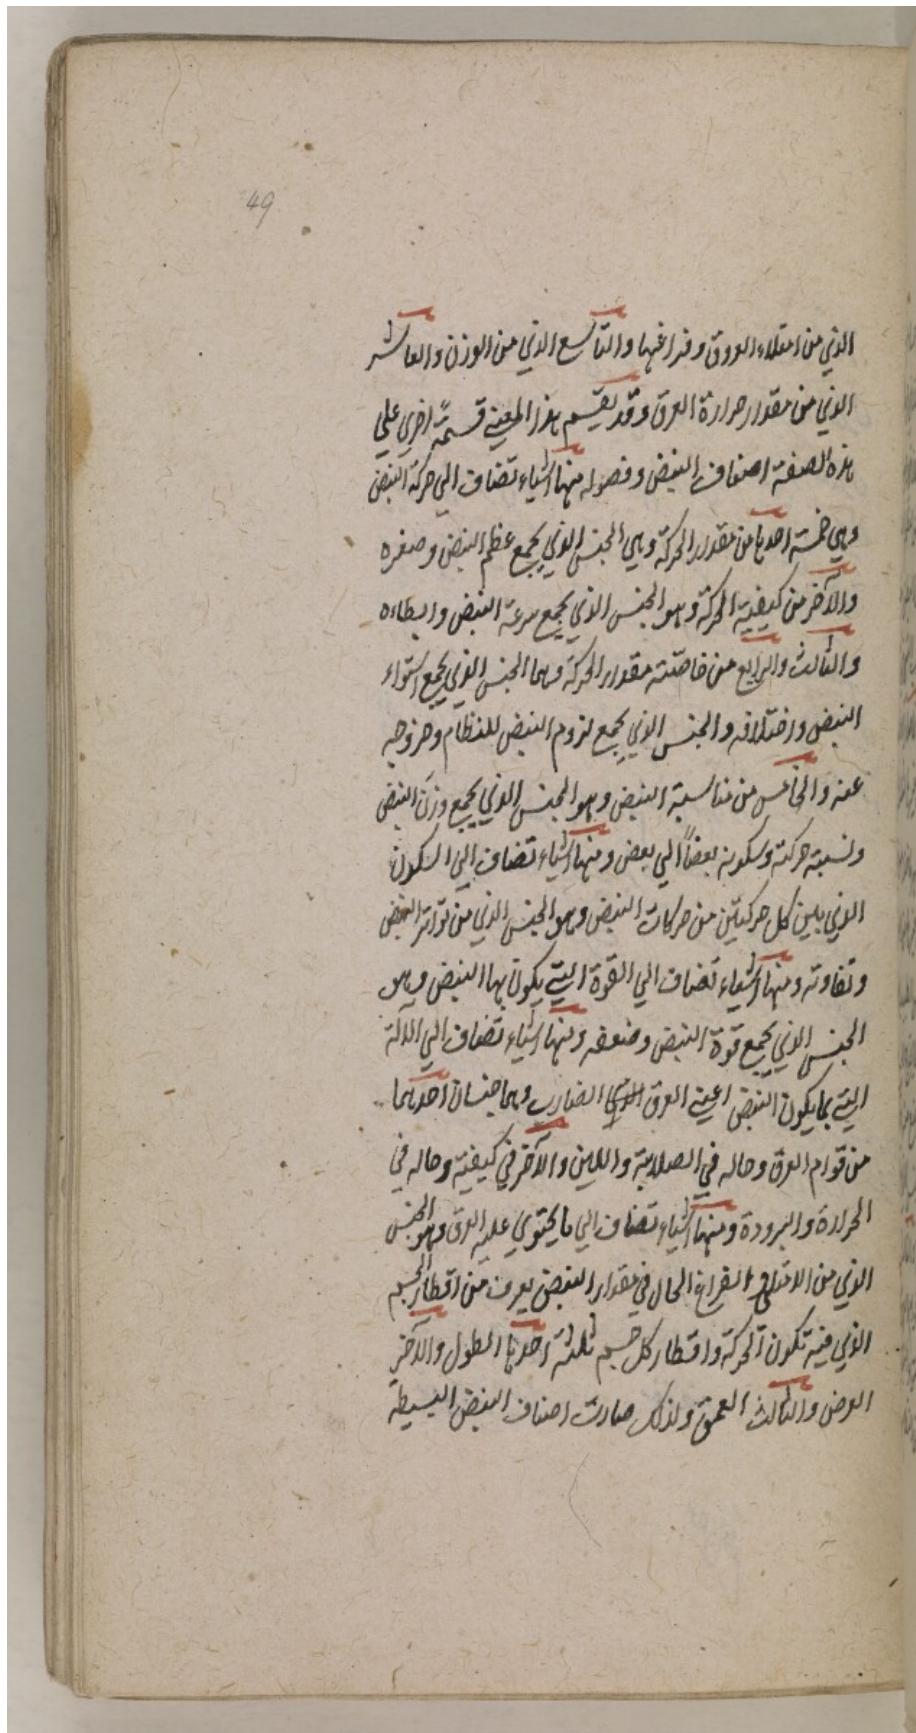 49
الذي من امتلاء العروق وفراغها والتاسع الذي من الوزن والعاشر
الذي من مقدار حرارة العرق وقد يقسم هذا المعني قسمةً اخري علي
هذه الصفة اصناف النبض وفصوله منها اشياء تضاف الي حركة النبض
وهي خمسة احدها من مقدار الحركة وهي الجنس الذي يجمع عظم النبض وصغره
والآخر من كيفية الحركة وهو الجنس الذي يجمع سرعة النبض وابطاءه
والثالث والرابع من خاصّته مقدار الحركة وهما الجنس الذي يجمع استواء
النبض واختلافه والجنس الذي يجمع لزوم النبض للنظام وخروجه
عنه والخامس من مناسبة النبض وهو الجنس الذي يجمع وزن النبض
ونسبة حركته وسكونه بعضاً الي بعض ومنها اشياء تضاف الي السكون
الذي بين كل حركتين من حركات النبض وهو الجنس الذي من تواتر النبض
وتفاوته ومنها اشياء تضاف الي القوة التي يكون بها النبض وهو
الجنس الذي يجمع قوة النبض وضعفه ومنها اشياء تضاف الي الآلة
التي بها يكون النبض اعني العرق الضارب وهما جنسان احدهما
من قوام العرق وحاله في الصلابة واللين والآخر في كيفيته وحاله في
الحرارة والبرودة ومنها اشياء تضاف الي ما يحتوي عليه العرق وهو الجنس
الذي من الامتلاء والفراغ الحال في مقدار النبض يعرف من اقطار الجسم
الذي فيه تكون الحركة واقطار كل جسم ثلثة احدها الطول والآخر
العرض والثالث العمق ولذلك صارت اصناف النبض البسيطة